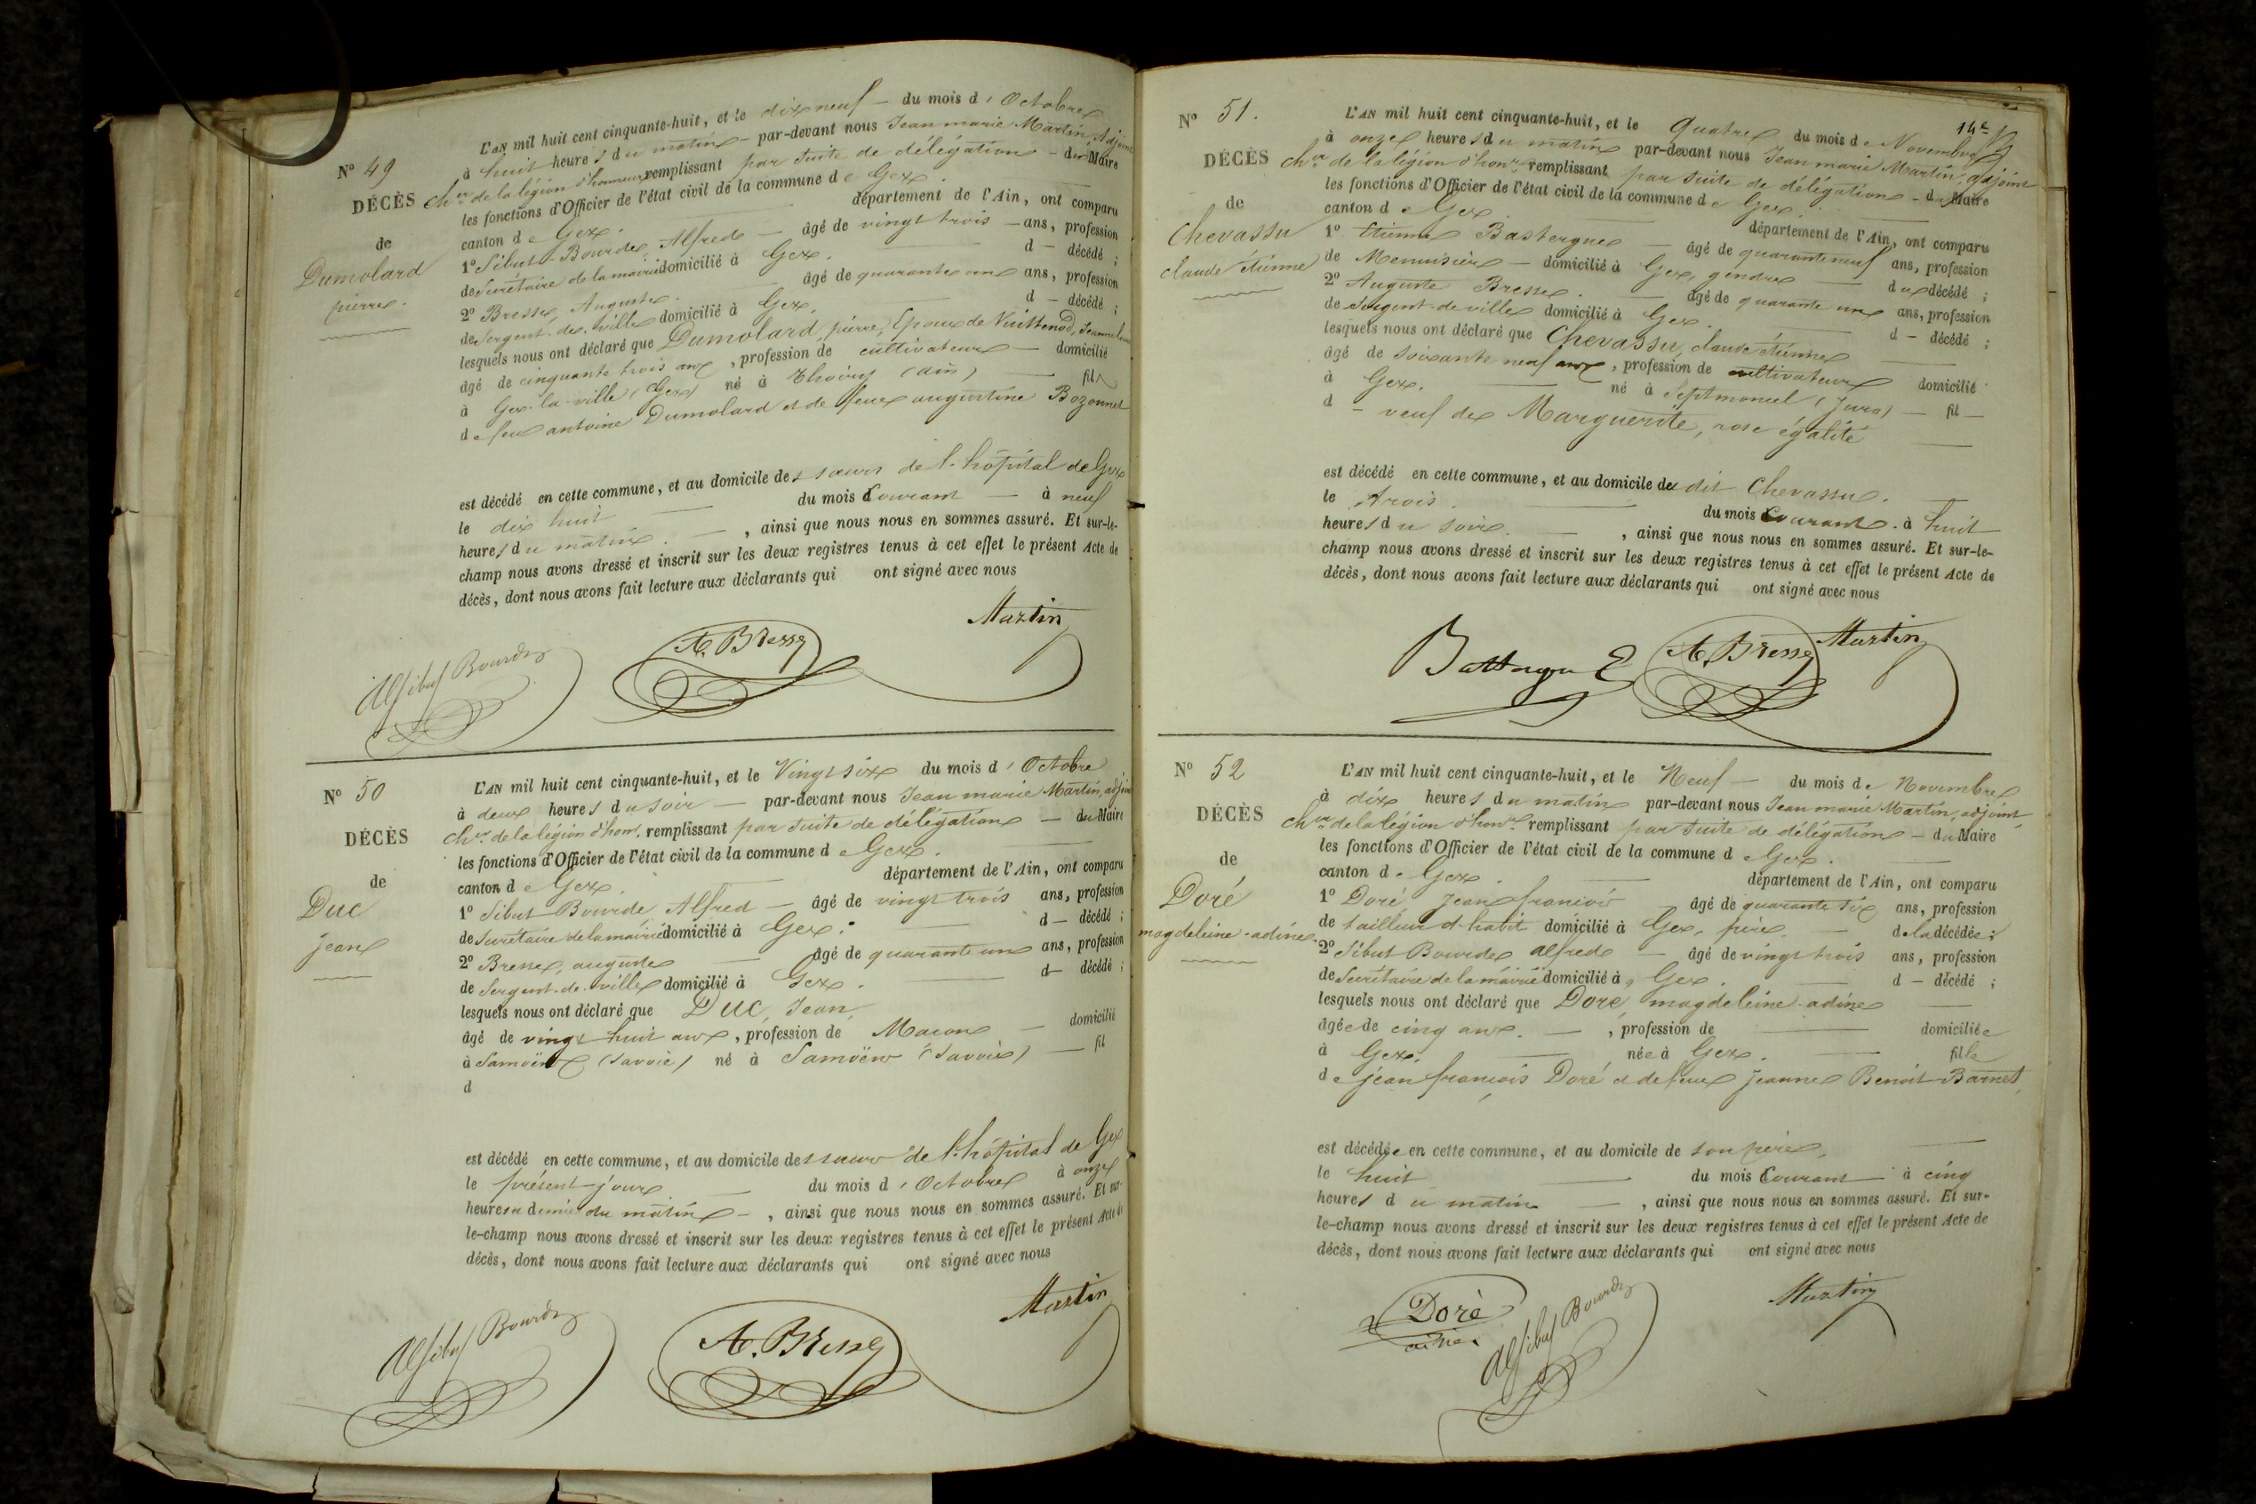 N° 49
DÉCÈS
de
Dumolard
pierre.
L'AN mil huit cent cinquante-huit, et le dix neuf — du mois d'Octobre
à huit heures du matin — par-devant nous Jean marie Martin, Adjoint
cher de la légion d'honneur remplissant par suite de délégation — du Maire
les fonctions d'Officier de l'état civil de la commune de Gex.
canton de Gex. département de l'Ain, ont comparu
1° Sibut-Bourde, Alfred — âgé de vingt trois — ans, profession
de Secrétaire de la mairie domicilié à Gex. d — décédé ;
2° Bresse, Auguste. âgé de quarante un ans, profession
de Sergent-de-ville domicilié à Gex. d — décédé ;
lesquels nous ont déclaré que Dumolard, pierre, Epoux de Vuittenod, Jeanne
âgé de cinquante trois ans, profession de cultivateur — domicilié
à Gex-la-ville (Gex) né à Thoiry (ain) — fils
de feu antoine Dumolard et de feue augustine Bozonnet
est décédé en cette commune, et au domicile des sœurs de l'hôpital de Gex
le dix huit — du mois Courant — à neuf
heures du matin. — , ainsi que nous nous en sommes assuré. Et sur-le-
champ nous avons dressé et inscrit sur les deux registres tenus à cet effet le présent Acte de
décès, dont nous avons fait lecture aux déclarants qui ont signé avec nous
Martin
A. Bresse
Alf Sibut Bourde
N° 50
DÉCÈS
de
Duc
jean
L'AN mil huit cent cinquante-huit, et le Vingt six du mois d'Octobre
à deux heures du soir — par-devant nous Jean marie Martin, adjoint
cher de la légion d'honr. remplissant par suite de délégation — du Maire
les fonctions d'Officier de l'état civil de la commune de Gex.
canton de Gex. département de l'Ain, ont comparu
1° Sibut Bourde, Alfred — âgé de vingt trois ans, profession
de Secrétaire de la mairie domicilié à Gex. — d — décédé ;
2° Bresse, auguste — âgé de quarante un ans, profession
de Sergent-de-ville domicilié à Gex. — d — décédé ;
lesquels nous ont déclaré que Duc, Jean,
âgé de vingt huit ans, profession de Maçon — domicilié
à Samoëns (Savoie) né à Samoëns (Savoie) — fil
d
est décédé en cette commune, et au domicile des sœurs de l'hôpital de Gex
le présent jour — du mois d'Octobre à onze
heures et demie du matin — , ainsi que nous nous en sommes assuré. Et sur-
le-champ nous avons dressé et inscrit sur les deux registres tenus à cet effet le présent Acte de
décès, dont nous avons fait lecture aux déclarants qui ont signé avec nous
Martin
A. Bresse
Alf Sibut Bourde
14e
N° 51.
DÉCÈS
de
Chevassu
claude étienne
L'AN mil huit cent cinquante-huit, et le Quatre du mois de Novembre
à onze heures du matin par-devant nous Jean marie Martin, adjoint
cher de la légion d'honr remplissant par suite de délégation — du Maire
les fonctions d'Officier de l'état civil de la commune de Gex.
canton de Gex. département de l'Ain, ont comparu
1° Etienne Bastergue — âgé de quarante neuf ans, profession
de Menuisier — domicilié à Gex, gendre — du décédé ;
2° Auguste Bresse. — âgé de quarante un ans, profession
de Sergent-de-ville domicilié à Gex. — d — décédé ;
lesquels nous ont déclaré que Chevassu, claude étienne
âgé de soixante neuf ans, profession de cultivateur domicilié
à Gex. — né à Septmoncel (Jura) — fil —
d — veuf de Marguerite, rose égalité —
est décédé en cette commune, et au domicile du dit Chevassu.
le trois. — du mois Courant. à huit
heures du soir. — , ainsi que nous nous en sommes assuré. Et sur-le-
champ nous avons dressé et inscrit sur les deux registres tenus à cet effet le présent Acte de
décès, dont nous avons fait lecture aux déclarants qui ont signé avec nous
A. Bresse Martin
N° 52
DÉCÈS
de
Doré
magdeleine-adine
L'AN mil huit cent cinquante-huit, et le Neuf — du mois de Novembre
à dix heures du matin par-devant nous Jean marie Martin, adjoint,
cher de la légion d'honr remplissant par suite de délégation — du Maire
les fonctions d'Officier de l'état civil de la commune de Gex.
canton de Gex. — département de l'Ain, ont comparu
1° Doré, Jean françois — âgé de quarante six ans, profession
de tailleur d'habit domicilié à Gex, père. — de la décédée ;
2° Sibut Bourde alfred — âgé de vingt trois ans, profession
de Secrétaire de la mairie domicilié à Gex. — d — décédé ;
lesquels nous ont déclaré que Doré, magdeleine-adine —
âgée de cinq ans. — , profession de — domiciliée
à Gex. — née à Gex. — fille
de jean françois Doré et de feue Jeanne Benoit-Barnet,
est décédée en cette commune, et au domicile de son père,
le huit — du mois Courant — à cinq
heures du matin — , ainsi que nous nous en sommes assuré. Et sur-
le-champ nous avons dressé et inscrit sur les deux registres tenus à cet effet le présent Acte de
décès, dont nous avons fait lecture aux déclarants qui ont signé avec nous
Doré
aîné
Alf Sibut Bourde
Martin